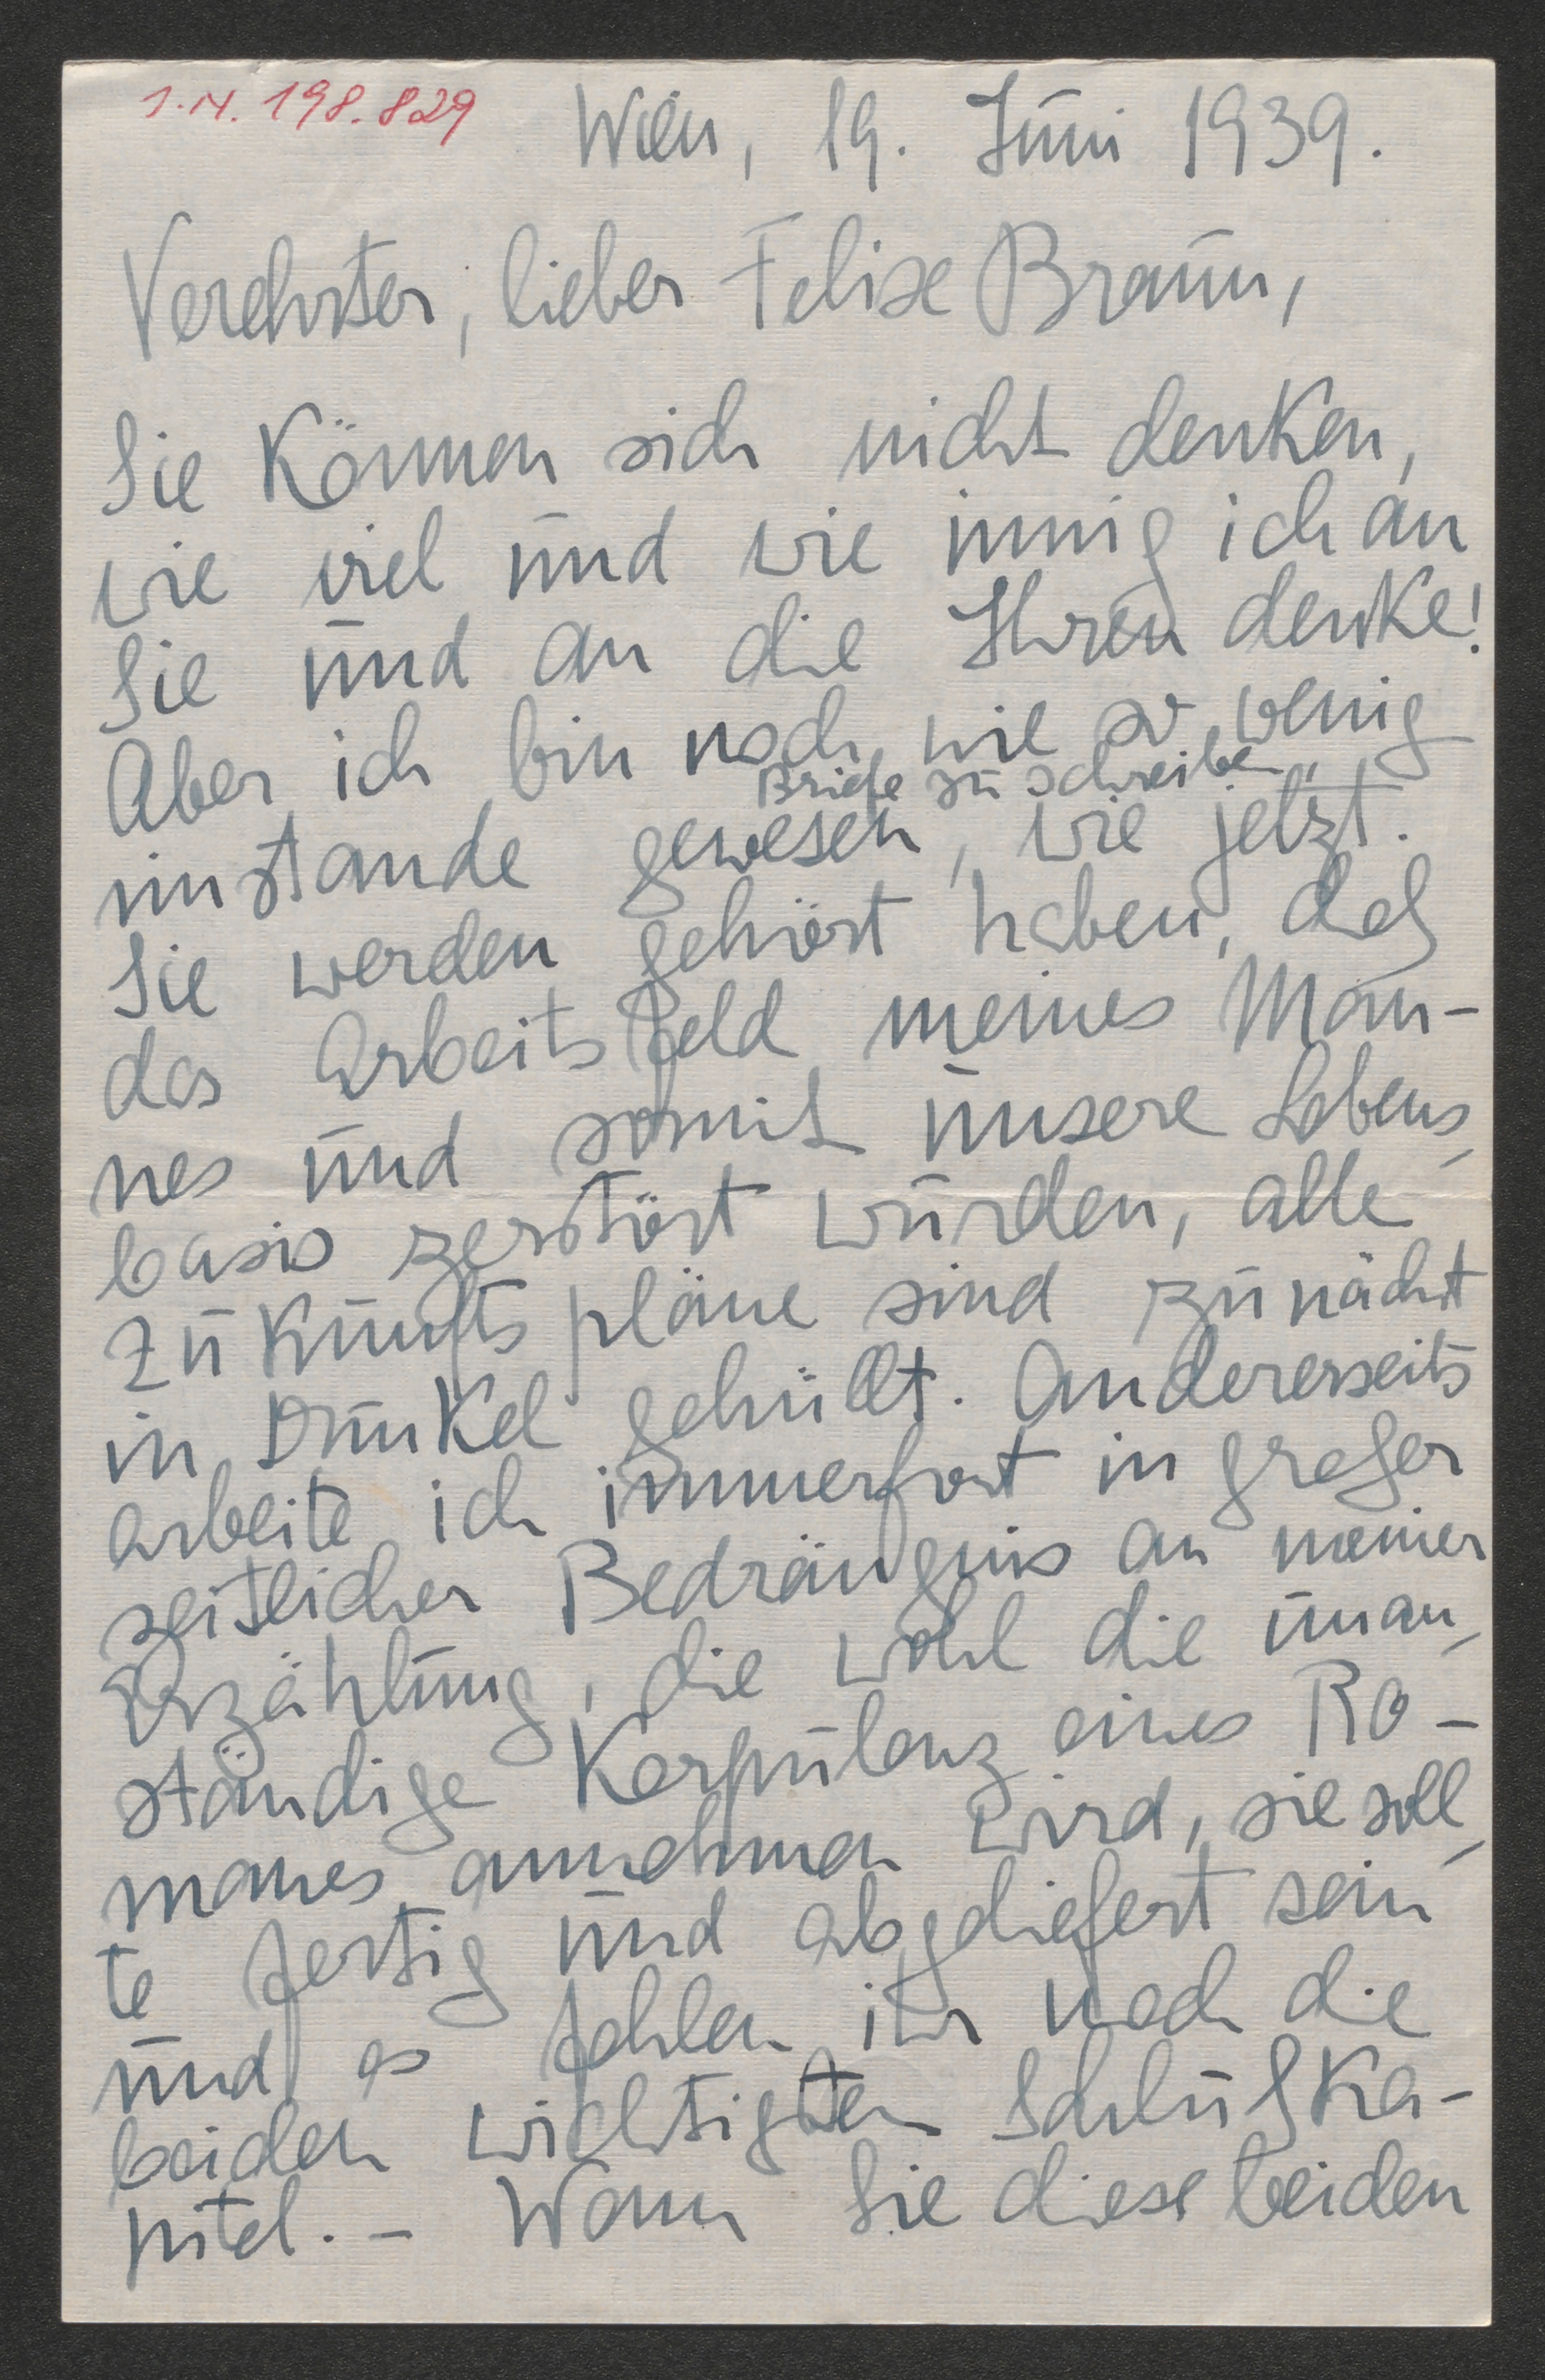 I.N. 198.829
Wien, 19. Juni 1939.
Verehrter, lieber Felix Braun,
Sie können sich nicht denken,
wie viel und wie innig ich an
Sie und an die Ihren denke!
Aber ich bin noch nie so wenig
Briefe zu schreiben
imstande gewesen, wie jetzt.
Sie werden gehört haben, daß
das Arbeitsfeld meines Man-
nes und somit unsere Lebens-
basis zerstört wurden, alle
Zukunftspläne sind zunächst
in Dunkel gehüllt. Andererseits
arbeite ich immerfort in großer
zeitlicher Bedrängnis an meiner
Erzählung, die wohl die unan-
ständige Korpulenz eines Ro-
manes annehmen wird, sie soll-
te fertig und abgeliefert sein
und es fehlen ihr noch die
beiden wichtigsten Schlußka-
pitel. – Wann Sie diese beiden